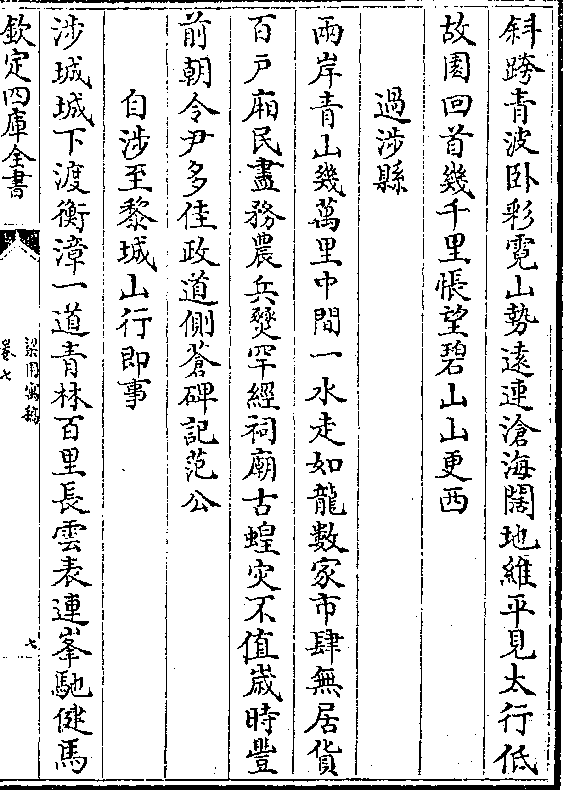 斜跨青波卧彩霓山勢逺連滄海闊地維平見太行低
故園回首幾千里悵望碧山山更西
過涉縣
兩岸青山幾萬里中間一水走如龍數家市肆無居貨
百戸廂民盡務農兵燹罕經祠廟古蝗灾不值歲時豐
前朝令尹多佳政道側蒼碑記范公
自涉至黎城山行即事
涉城城下渡衡漳一道青林百里長雲表連峯馳健馬
欽定四庫全書
梁園寓稿
卷七
七